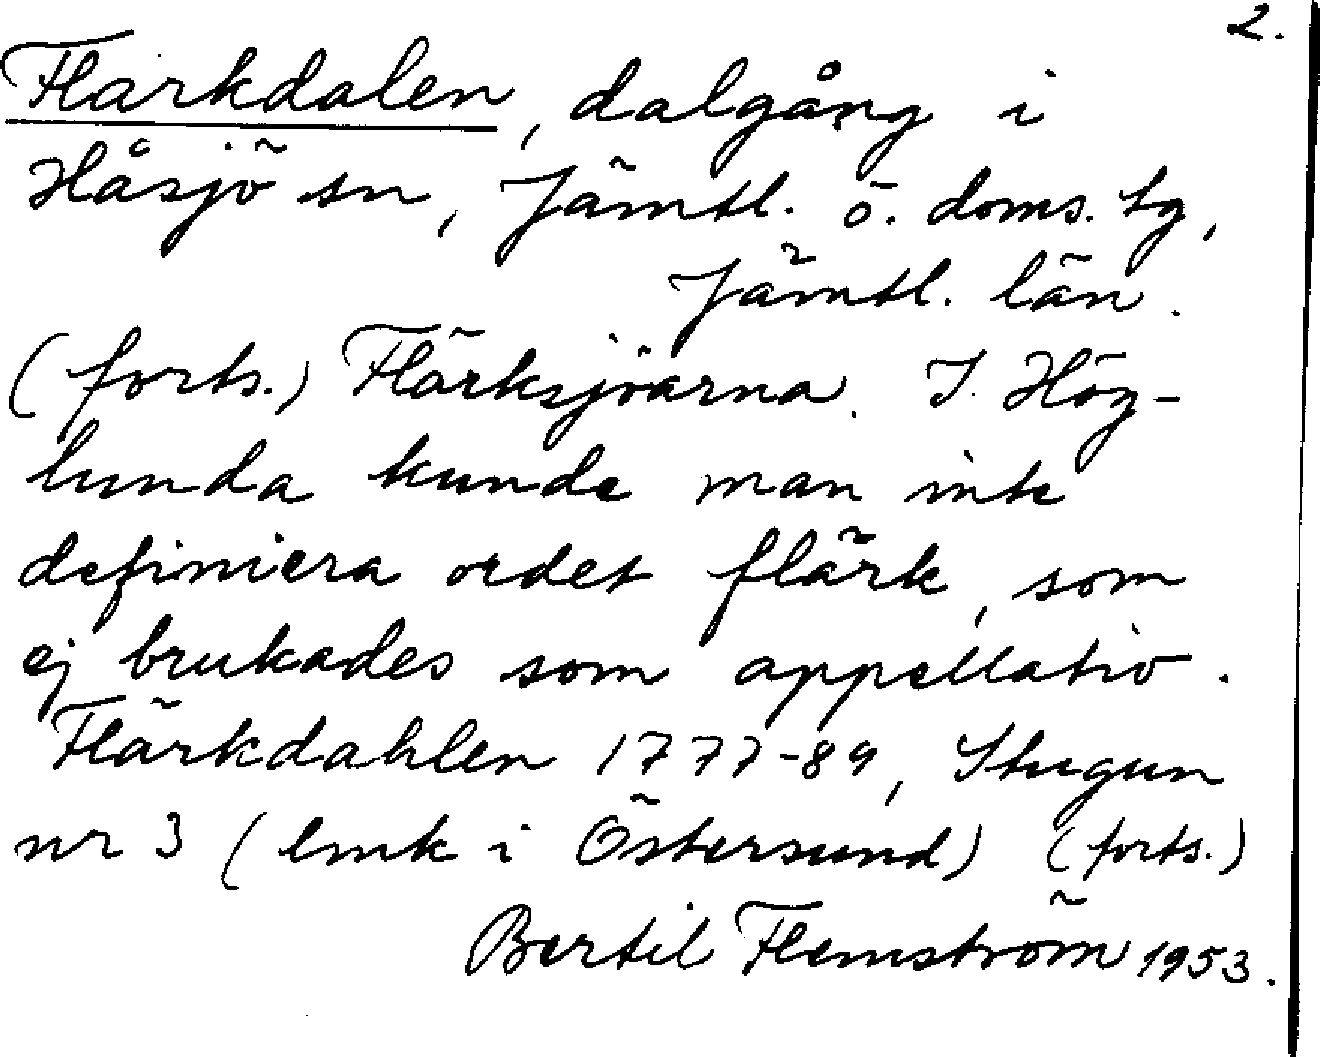 2.
Flärkdalen, dalgång i
Håsjö sn, Jämtl. ö. doms. tg,
Jämtl. län.
(forts.) Flärksjöarna. I Hög-
lunda kunde man inte
definiera ordet flärk, som
ej brukades som appellativ.
Flärkdahlen 1777-89, Stugun
nr 3 (lmk i Östersund) (forts.)
Bertil Flemström 1953.